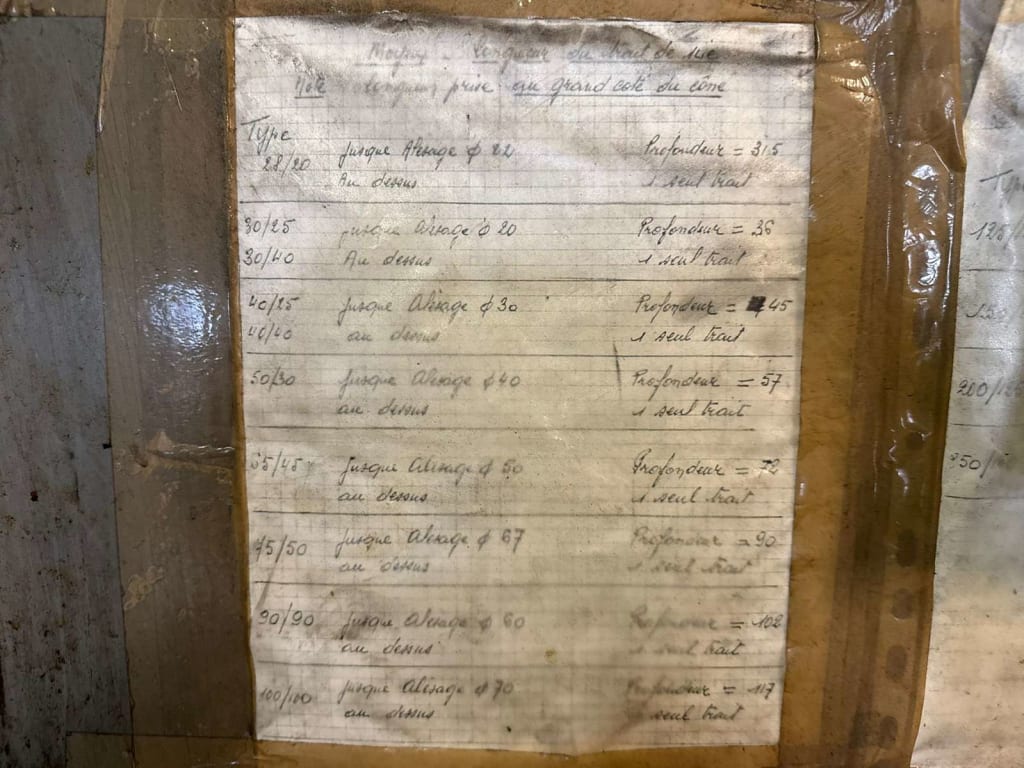 Moyeu - Longueur du trait de scie
Note Longueur prise au grand coté du cône
Type
28/20 jusque Alésage ϕ 22 Profondeur = 315
Au dessus 1 seul trait
30/25 jusque Alésage ϕ 20 Profondeur = 36
30/40 Au dessus 1 seul trait
40/25 jusque Alésage ϕ 30 Profondeur = 45
40/40 au dessus 1 seul trait
50/30 jusque Alésage ϕ 40 Profondeur = 57
au dessus 1 seul trait
65/45 jusque Alésage ϕ 50 Profondeur = 72
au dessus 1 seul trait
75/50 jusque Alésage ϕ 67 Profondeur = 90
au dessus 1 seul trait
90/90 jusque Alésage ϕ 60 Profondeur = 102
au dessus 1 seul trait
100/100 jusque Alésage ϕ 70 Profondeur = 117
au dessus seul trait
125/
200/